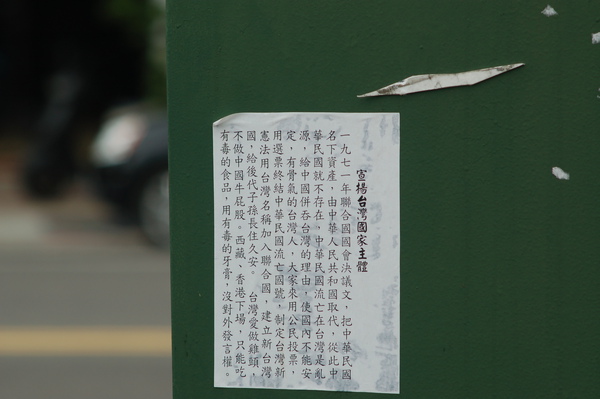 宣揚台灣國家主體
一九七一年聯合國國會決議文，把中華民國
名下資產，由中華人民共和國取代，從此中
華民國就不存在、中華民國流亡在台灣是亂
源，給中國併吞台灣的理由，使國內不能安
定，有骨氣的台灣人，大家來用公民投票，
用選票終結中華民國流亡國號，制定台灣新
憲法用台灣名稱加入聯合國，建立新台灣
國，給後代子孫長住久安。台灣愛做雞頭，
不做中國牛屁股。西藏、香港下場，只能吃
有毒的食品，用有毒的牙膏，沒對外發言權。